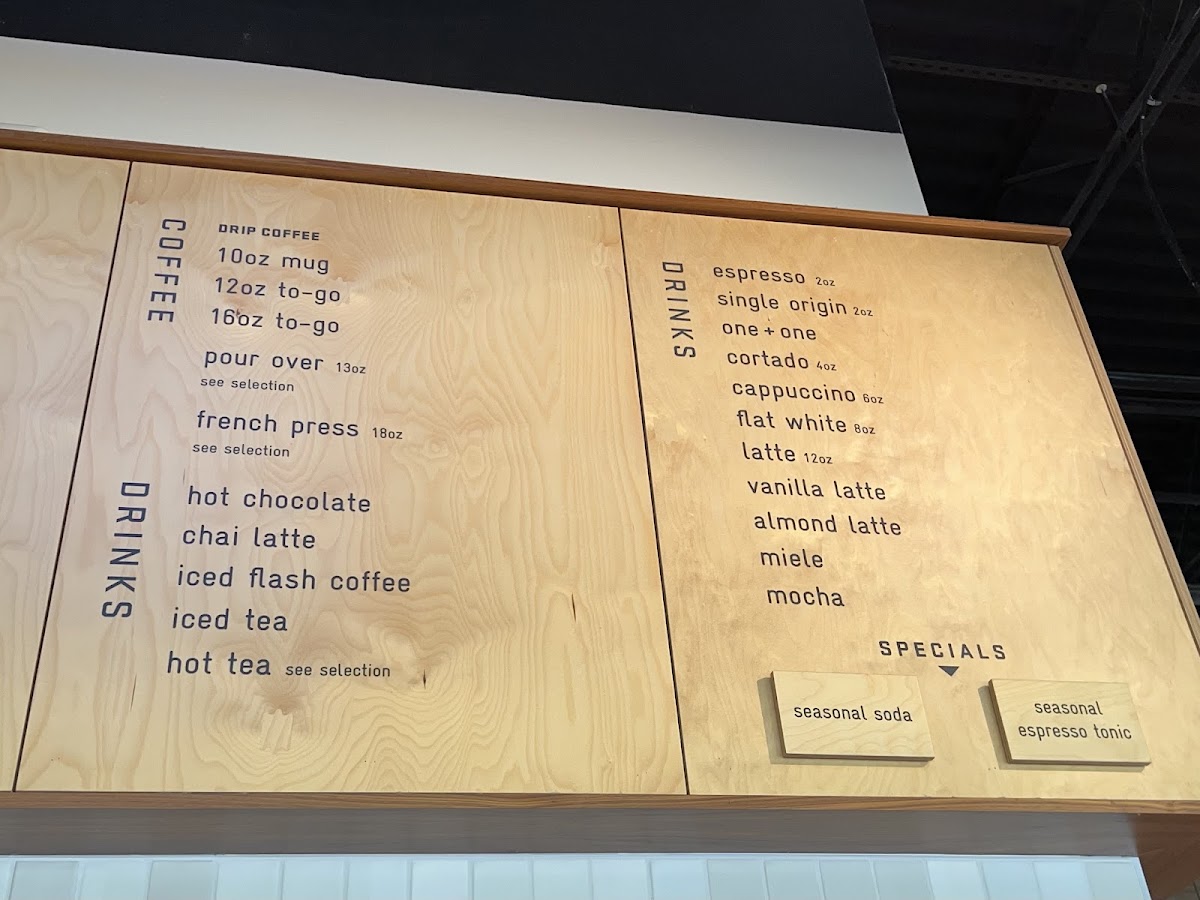 COFFEE
DRIP COFFEE
10oz mug
12oz to-go
16oz to-go
pour over 13oz
see selection
french press 18oz
see selection
DRINKS
hot chocolate
chai latte
iced flash coffee
iced tea
hot tea see selection
DRINKS
espresso 2oz
single origin 2oz
one + one
cortado 4oz
cappuccino 6oz
flat white 8oz
latte 12oz
vanilla latte
almond latte
miele
mocha
SPECIALS
seasonal soda
seasonal
espresso tonic